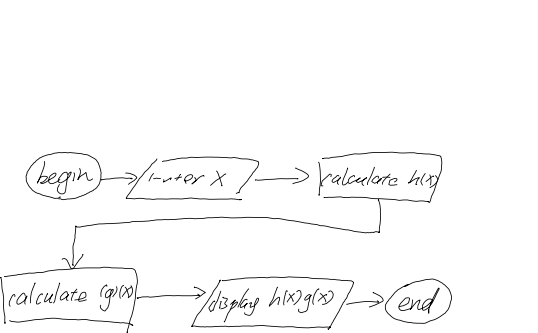 begin
enter X
calculate h(x)
calculate g(x)
display h(x)g(x)
end